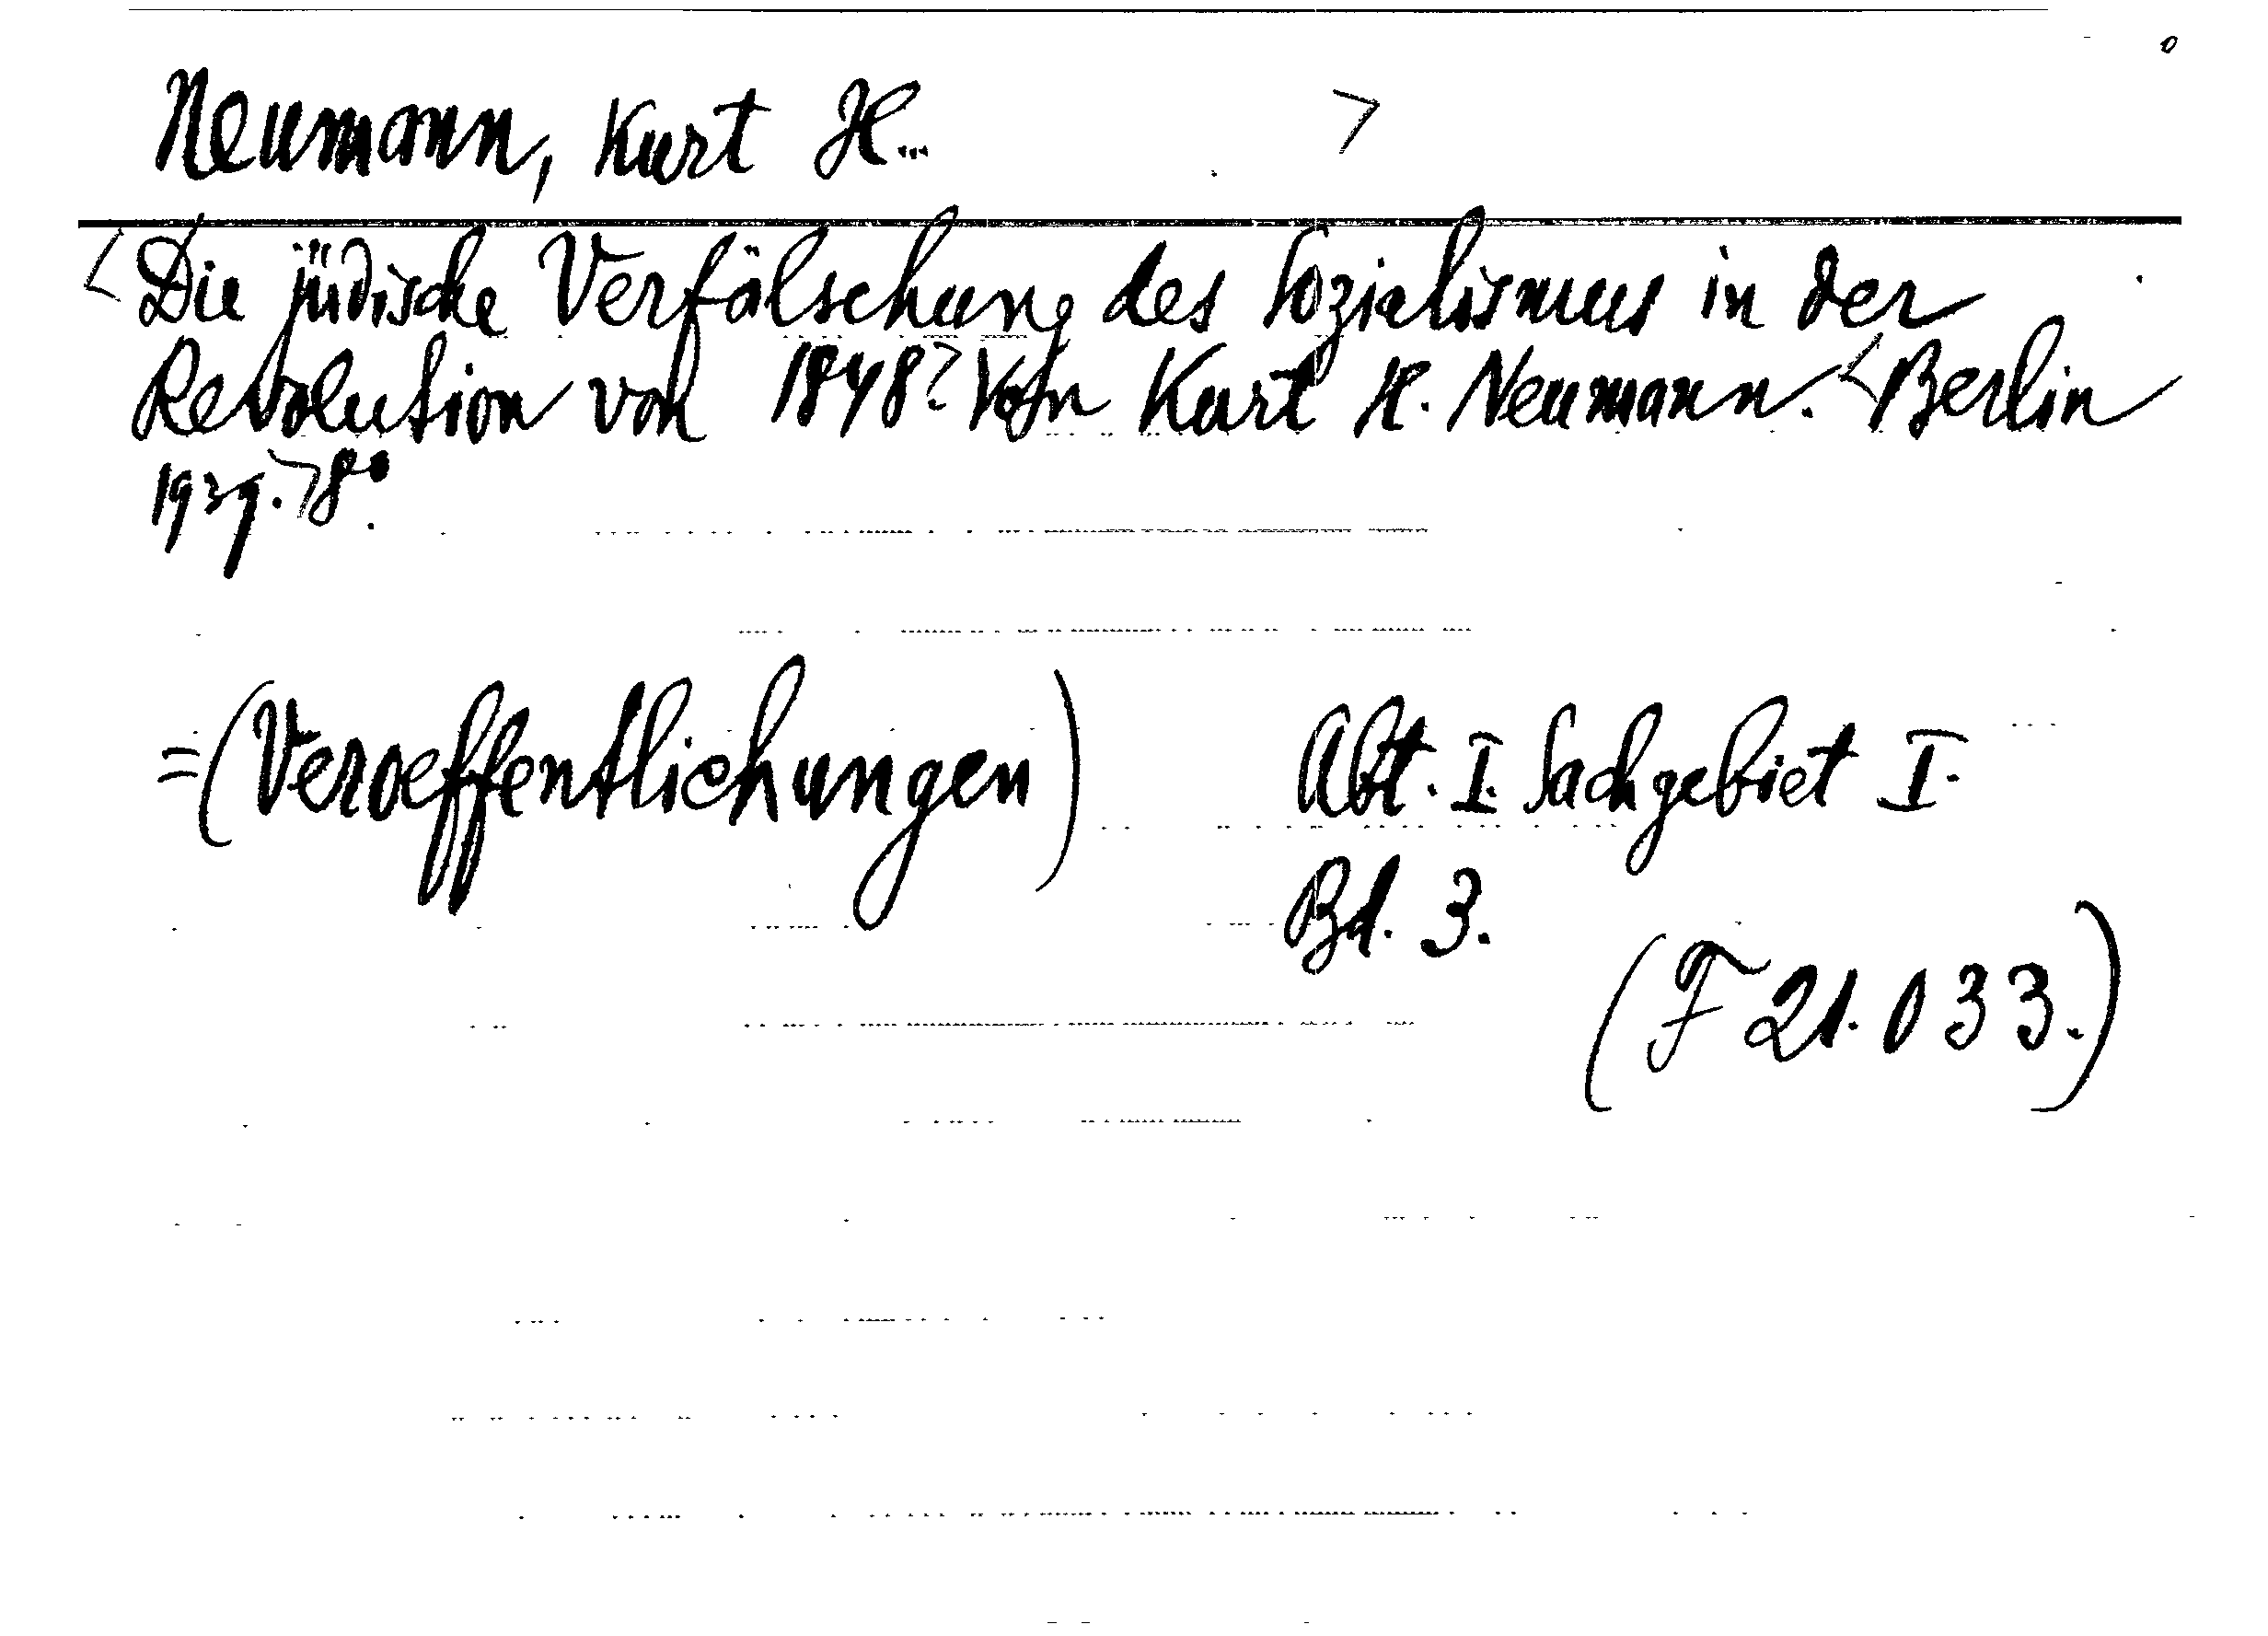 Neumann, Kurt H... >
<Die jüdische Verfälschung des Sozialismus in der
Revolution von 1848> Von Kurt H. Neumann. <Berlin
1939.> 8°.
=(Veroeffentlichungen) Abt. I. Sachgebiet I.
Bd. 3.
(F 21.033.)